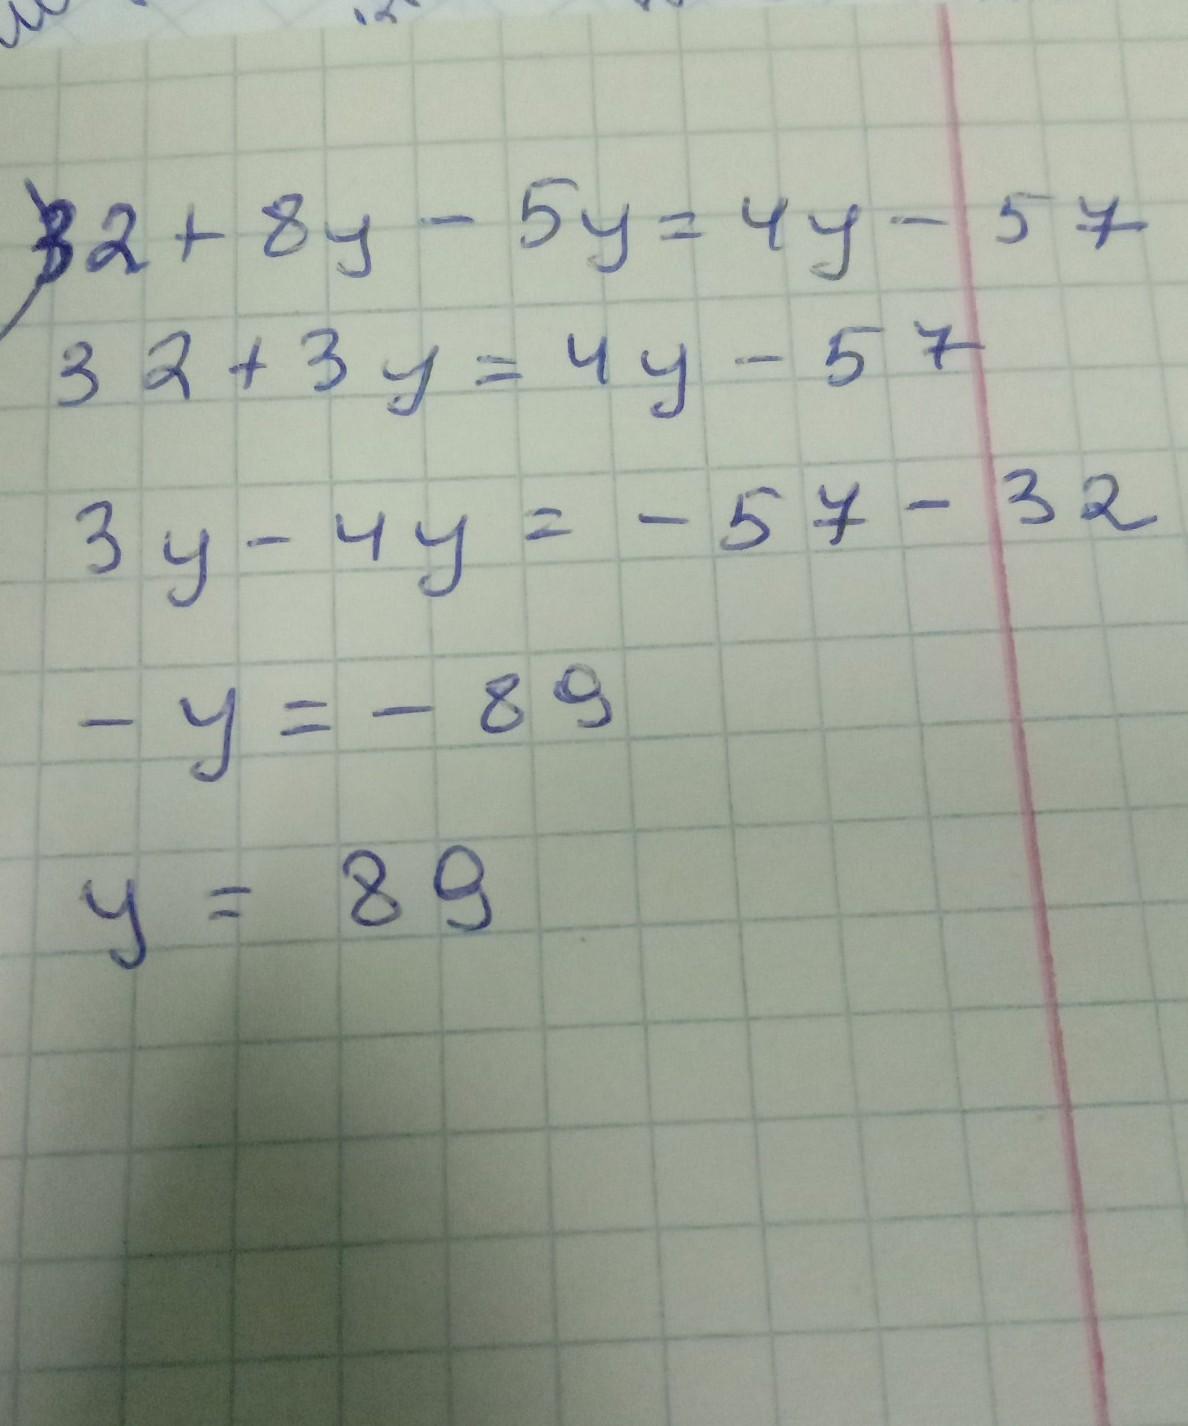 32 + 8y - 5y = 4y - 57
32 + 3y = 4y - 57
3y - 4y = - 57 - 32
- y = - 89
y = 89